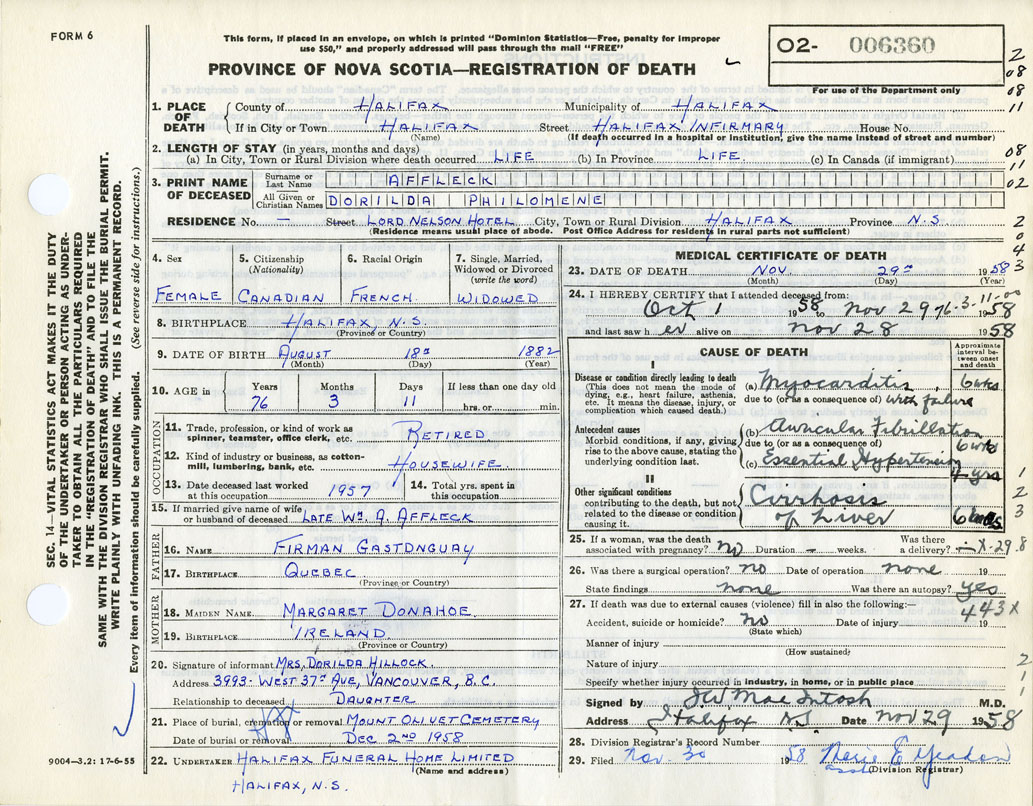 FORM 6
This form, if placed in an envelope, on which is printed "Dominion Statistics—Free, penalty for improper
use $50," and properly addressed will pass through the mail "FREE"
PROVINCE OF NOVA SCOTIA—REGISTRATION OF DEATH
02- 006360
For use of the Department only
1. PLACE OF DEATH
County of HALIFAX Municipality of HALIFAX
If in City or Town HALIFAX Street HALIFAX INFIRMARY House No.
(Name) (If death occurred in a hospital or institution, give the name instead of street and number)
2. LENGTH OF STAY (in years, months and days)
(a) In City, Town or Rural Division where death occurred LIFE (b) In Province LIFE. (c) In Canada (if immigrant)
3. PRINT NAME OF DECEASED
Surname or Last Name AFFLECK
All Given or Christian Names DORILDA PHILOMENE
RESIDENCE No. — Street LORD NELSON HOTEL City, Town or Rural Division HALIFAX Province N.S.
(Residence means usual place of abode. Post Office Address for residents in rural parts not sufficient)
4. Sex
FEMALE
5. Citizenship
(Nationality)
CANADIAN
6. Racial Origin
FRENCH.
7. Single, Married,
Widowed or Divorced
(write the word)
WIDOWED
8. BIRTHPLACE HALIFAX, N.S.
(Province or Country)
9. DATE OF BIRTH AUGUST 18th 1882
(Month) (Day) (Year)
10. AGE in
Years Months Days If less than one day old
76 3 11 hrs. or min.
OCCUPATION
11. Trade, profession, or kind of work as
spinner, teamster, office clerk, etc. RETIRED
12. Kind of industry or business, as cotton-
mill, lumbering, bank, etc. HOUSEWIFE.
13. Date deceased last worked
at this occupation 1957
14. Total yrs. spent in
this occupation
15. If married give name of wife
or husband of deceased LATE WM. A. AFFLECK
FATHER
16. NAME FIRMAN GASTONGUAY
17. BIRTHPLACE QUEBEC
(Province or Country)
MOTHER
18. MAIDEN NAME. MARGARET DONAHOE
19. BIRTHPLACE IRELAND
(Province or Country)
20. Signature of informant MRS, DORILDA HILLOCK.
Address 3993- WEST 37th AVE, VANCOUVER, B.C.
Relationship to deceased DAUGHTER
21. Place of burial, cremation or removal MOUNT OLIVET CEMETERY
Date of burial or removal DEC 2nd 1958
22. UNDERTAKER HALIFAX FUNERAL HOME LIMITED
(Name and address)
HALIFAX, N.S.
9004—3.2: 17-6-55
MEDICAL CERTIFICATE OF DEATH
23. DATE OF DEATH Nov 29th 1958
(Month) (Day) (Year)
24. I HEREBY CERTIFY that I attended deceased from:
Oct 1 1958 to Nov 29 1958
76-3-11-00
and last saw her alive on Nov 28 1958
CAUSE OF DEATH
Approximate
interval be-
tween onset
and death
I
Disease or condition directly leading to death
(This does not mean the mode of
dying, e.g., heart failure, asthenia,
etc. It means the disease, injury, or
complication which caused death.)
(a) Myocarditis, 6 wks
due to (or as a consequence of) with failure
Antecedent causes
Morbid conditions, if any, giving
rise to the above cause, stating the
underlying condition last.
(b) Auricular Fibrillation
due to (or as a consequence of) 6 wks
(c) Essential Hypertension
4 yrs
II
Other significant conditions
contributing to the death, but not
related to the disease or condition
causing it.
Cirrhosis
of Liver
25. If a woman, was the death
associated with pregnancy? no Duration — weeks. Was there
a delivery? X-29.8
26. Was there a surgical operation? no Date of operation none 19
State findings none Was there an autopsy? yes
27. If death was due to external causes (violence) fill in also the following:—
443X
Accident, suicide or homicide? no Date of injury 19
(State which)
Manner of injury
(How sustained)
Nature of injury
Specify whether injury occurred in industry, in home, or in public place
Signed by J W MacIntosh M.D.
Address Halifax NS Date Nov 29 1958
28. Division Registrar's Record Number
29. Filed Nov. 30 1958
(Division Registrar)
SEC. 14—VITAL STATISTICS ACT MAKES IT THE DUTY
OF THE UNDERTAKER OR PERSON ACTING AS UNDER-
TAKER TO OBTAIN ALL THE PARTICULARS REQUIRED
IN THE "REGISTRATION OF DEATH" AND TO FILE THE
SAME WITH THE DIVISION REGISTRAR WHO SHALL ISSUE THE BURIAL PERMIT.
WRITE PLAINLY WITH UNFADING INK. THIS IS A PERMANENT RECORD.
Every item of information should be carefully supplied. (See reverse side for instructions.)
2
08
08
11
08
11
02
2
0
4
3
1
2
3
8
2
1
1